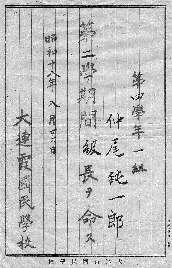 第四學年一組
仲尾純一郎
第二學期間級長ヲ命ス
昭和十八年八月廿六日
大連霞國民學校